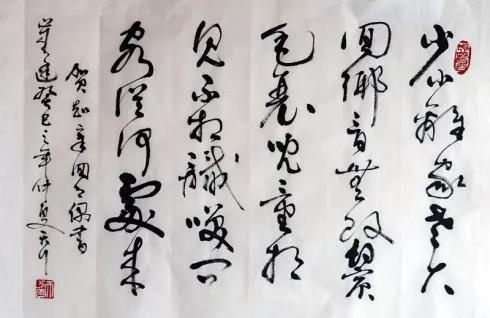 少小離家老大
回鄉音無改鬢
毛衰兒童相
見不相識笑问
客從何處來
賀知章回乡偶書
癸巳之年仲夏